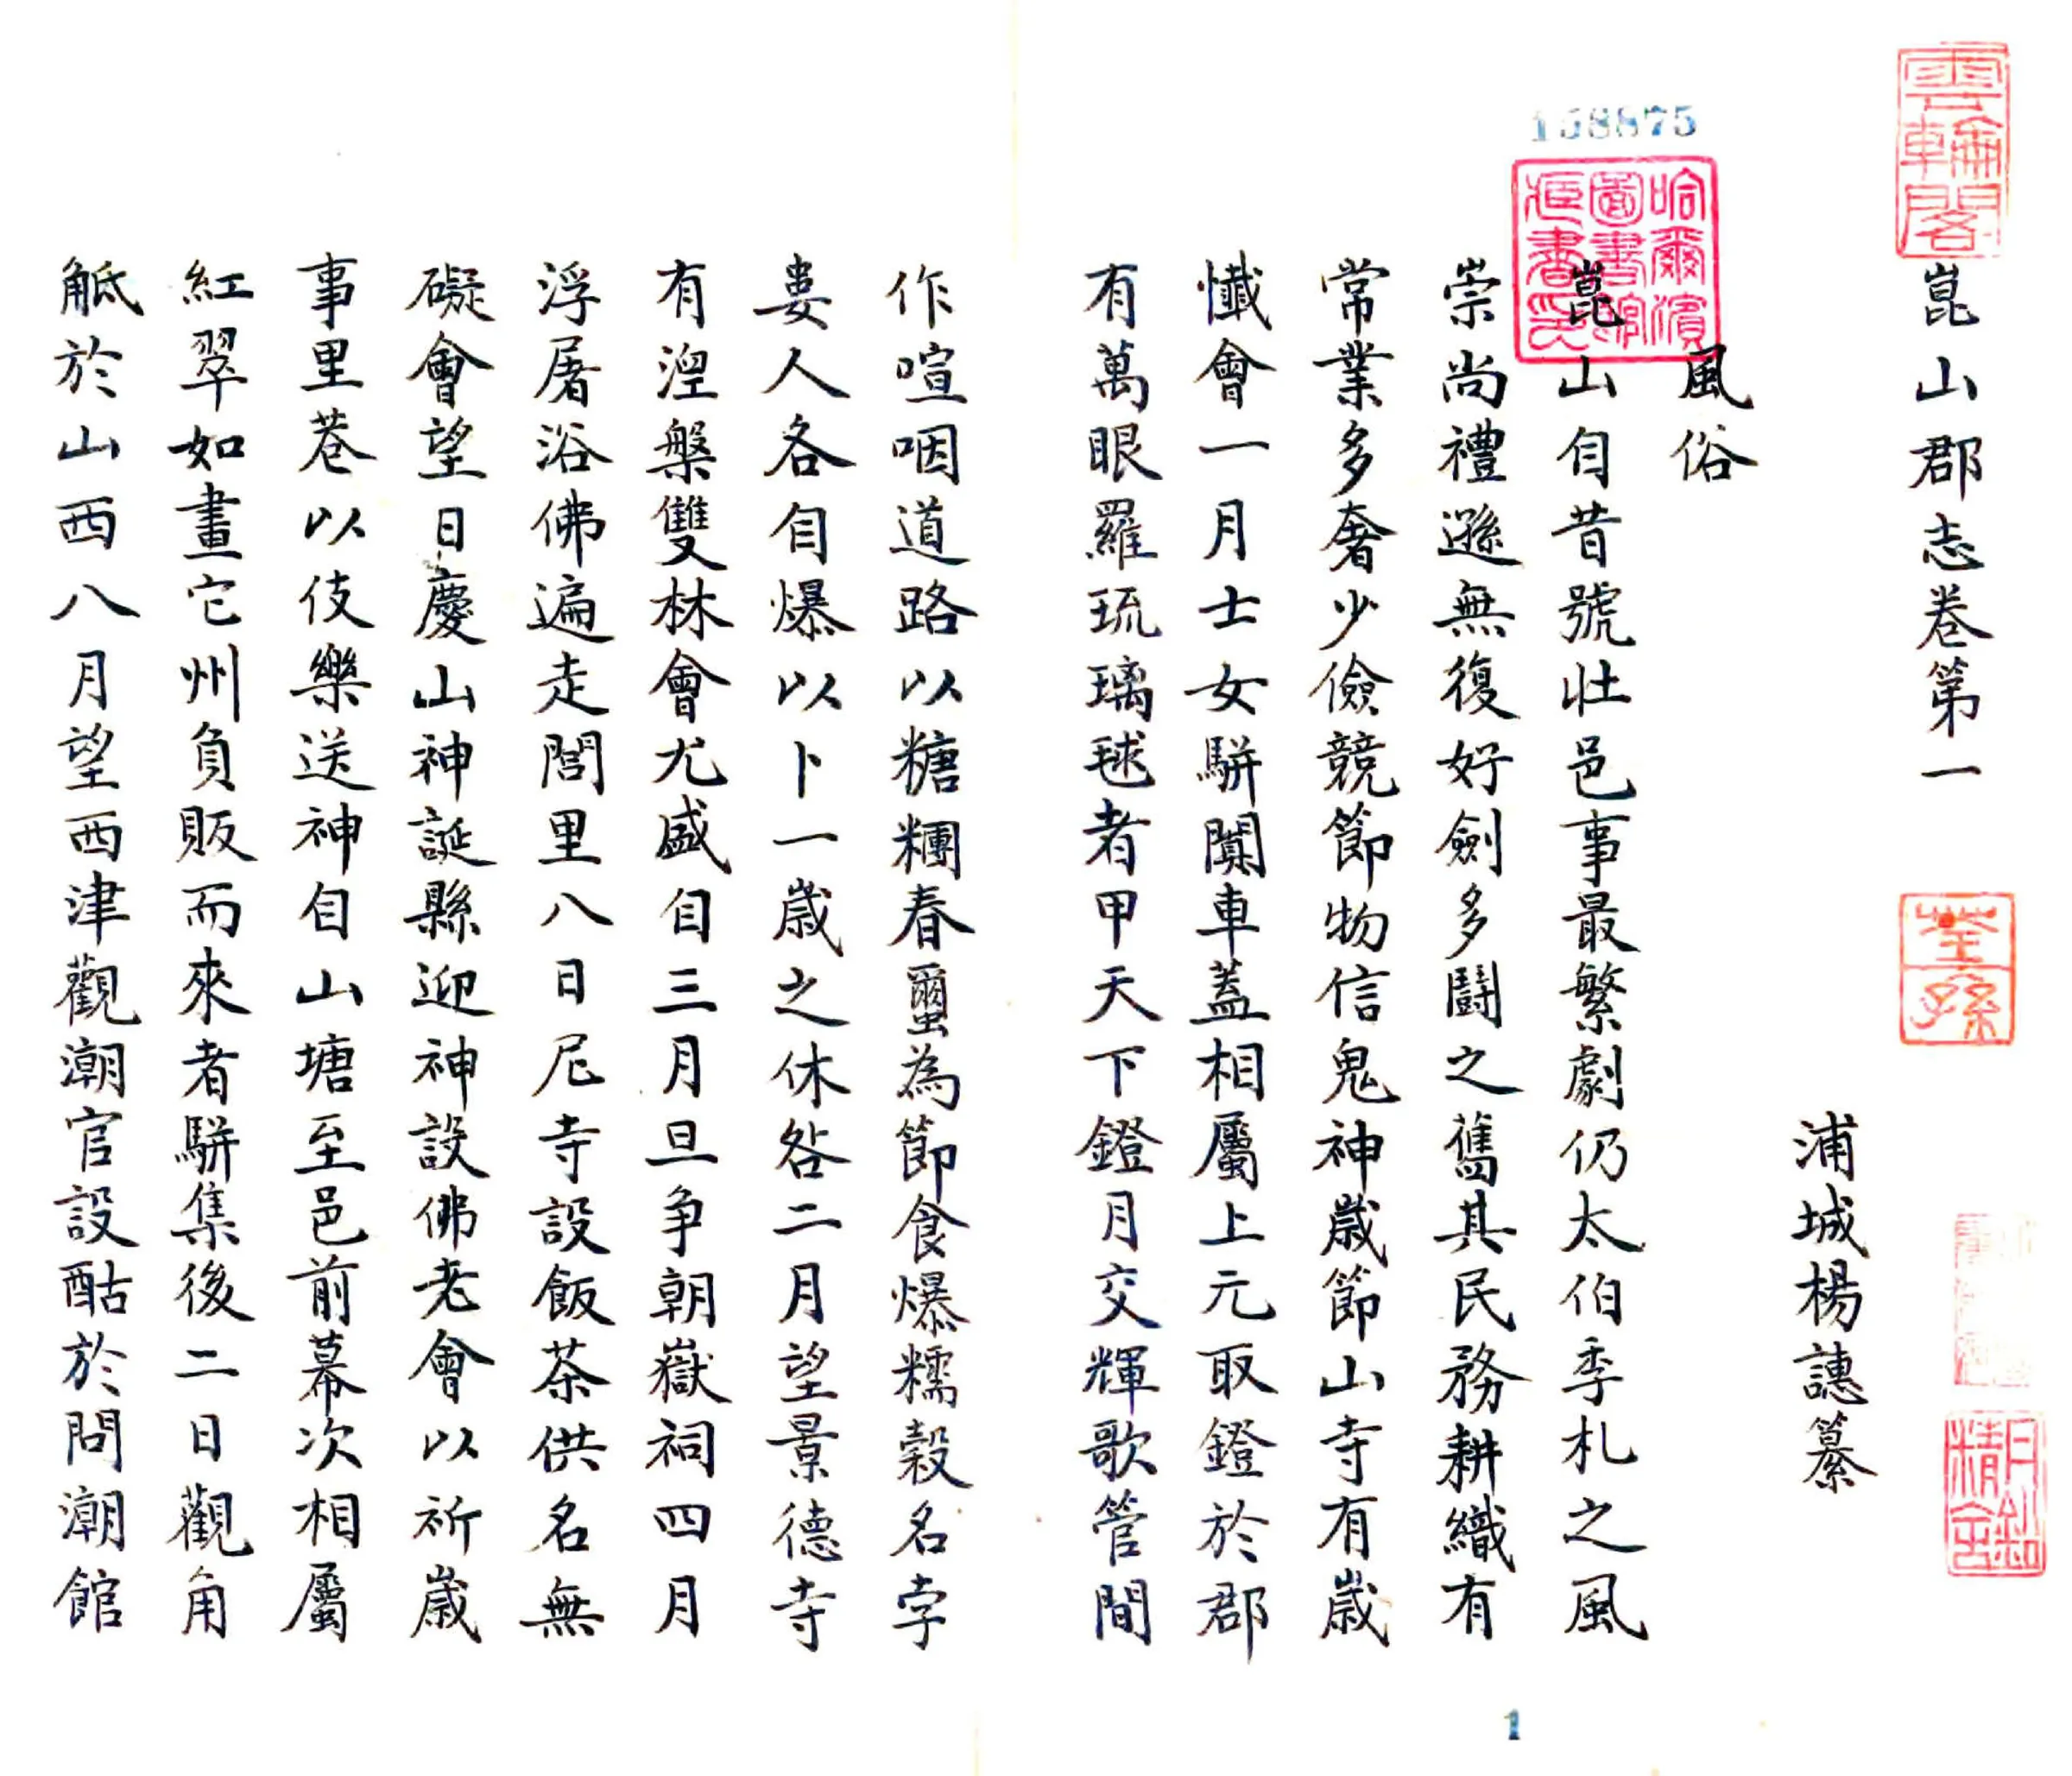 崑山郡志卷第一
浦城楊譓纂
風俗
崑山自昔號壯邑事最繁劇仍太伯季札之風
崇尚禮遜無復好劍多鬪之舊其民務耕織有
常業多奢少儉競節物信鬼神歲節山寺有歲
懺會一月士女駢闐車蓋相屬上元取鐙於郡
有萬眼羅琉璃毬者甲天下鐙月交輝歌管間
作喧咽道路以糖糰春蠒為節食爆糯穀名孛
婁人各自爆以卜一歲之休咎二月望景德寺
有湼槃雙林會尤盛自三月旦争朝嶽祠四月
浮屠浴佛遍走閭里八日尼寺設飯茶供名無
礙會望日慶山神誕縣迎神設佛老會以祈歲
事里巷以伎樂送神自山塘至邑前幕次相屬
紅翠如畫它州負販而來者駢集後二日觀角
觝於山西八月望西津觀潮官設酤於問潮館
雲輪閣
158875
哈爾濱圖書館臧書印
荃孫
1